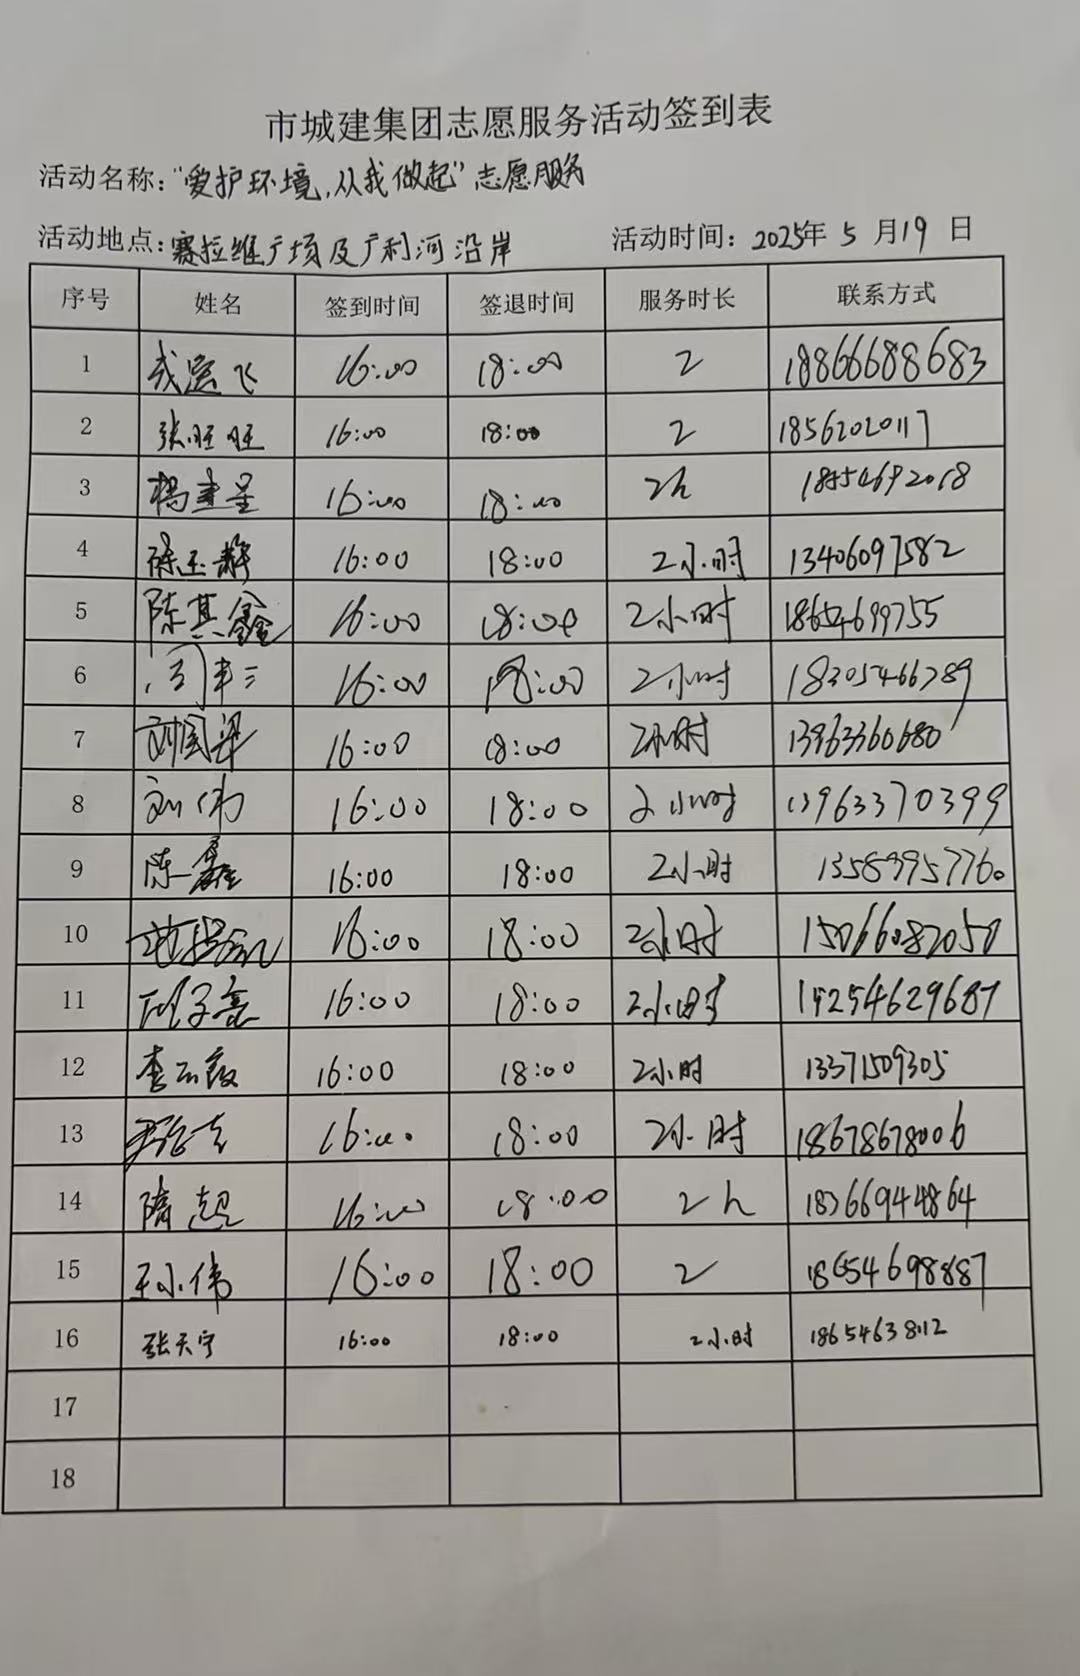 市城建集团志愿服务活动签到表
活动名称:“爱护环境,从我做起”志愿服务
活动地点:赛拉维广场及广利河沿岸 活动时间:2025年5月19日
序号 姓名 签到时间 签退时间 服务时长 联系方式
1 飞 16:00 18:00 2 18866688683
2 张旺旺 16:00 18:00 2 18562020117
3 杨建星 16:00 18:00 2h 18554692018
4 徐玉静 16:00 18:00 2小时 13406097582
5 陈其鑫 16:00 18:00 2小时 18654699755
6 16:00 18:00 2小时 18305466789
7 刘国梁 16:00 18:00 2小时 13963360680
8 刘伟 16:00 18:00 2小时 13963370399
9 陈鑫 16:00 18:00 2小时 13583957760
10 16:00 18:00 2小时 15066082050
11 16:00 18:00 2小时 15254629687
12 李 霞 16:00 18:00 2小时 13371509305
13 16:00 18:00 2小时 18678678006
14 隋超 16:00 18:00 2h 18366944864
15 王小伟 16:00 18:00 2 18654698887
16 张天宇 16:00 18:00 2小时 18654638112
17
18